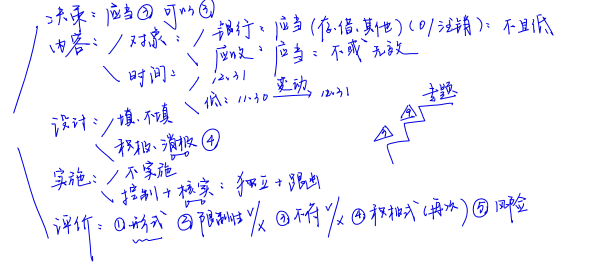 决策：应当③ 可以③
内容：对象：银行：应当(存、借、其他)(0/注销)：不且低
应收：应当：不或无效
时间：12.31
低：11.30 变动→ 12.31
专题
设计：填、不填
积极、消极④
实施：不实施
控制+核实：独立+跟出
评价：①形式 ②限制性√/× ③不符√/× ④积极式(再次) ⑤风险